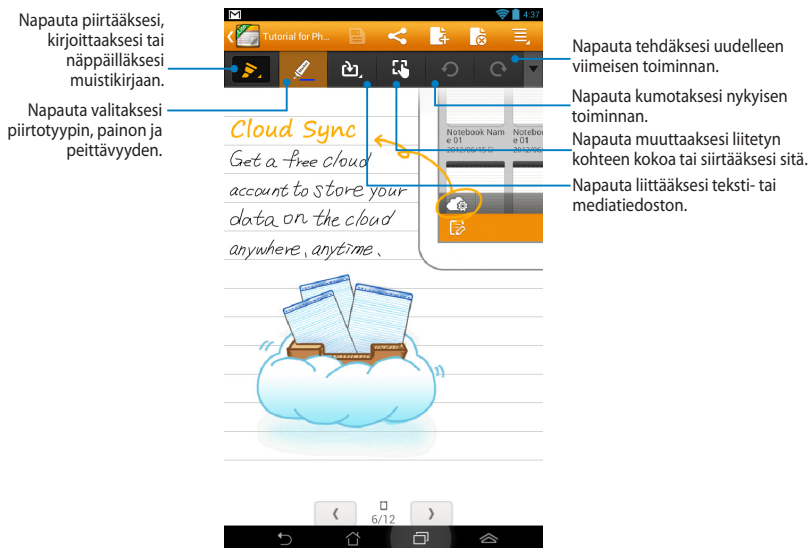 Napauta piirtääksesi,
kirjoittaaksesi tai
näppäilläksesi
muistikirjaan.
Napauta valitaksesi
piirtotyypin, painon ja
peittävyyden.
4:37
Tutorial for Ph...
Cloud Sync
Get a free cloud
account to store your
data on the cloud
anywhere, anytime.
Notebook Nam
e 01
2012/06/15
Notebo
e 01
2012/06
6/12
Napauta tehdäksesi uudelleen
viimeisen toiminnan.
Napauta kumotaksesi nykyisen
toiminnan.
Napauta muuttaaksesi liitetyn
kohteen kokoa tai siirtääksesi sitä.
Napauta liittääksesi teksti- tai
mediatiedoston.